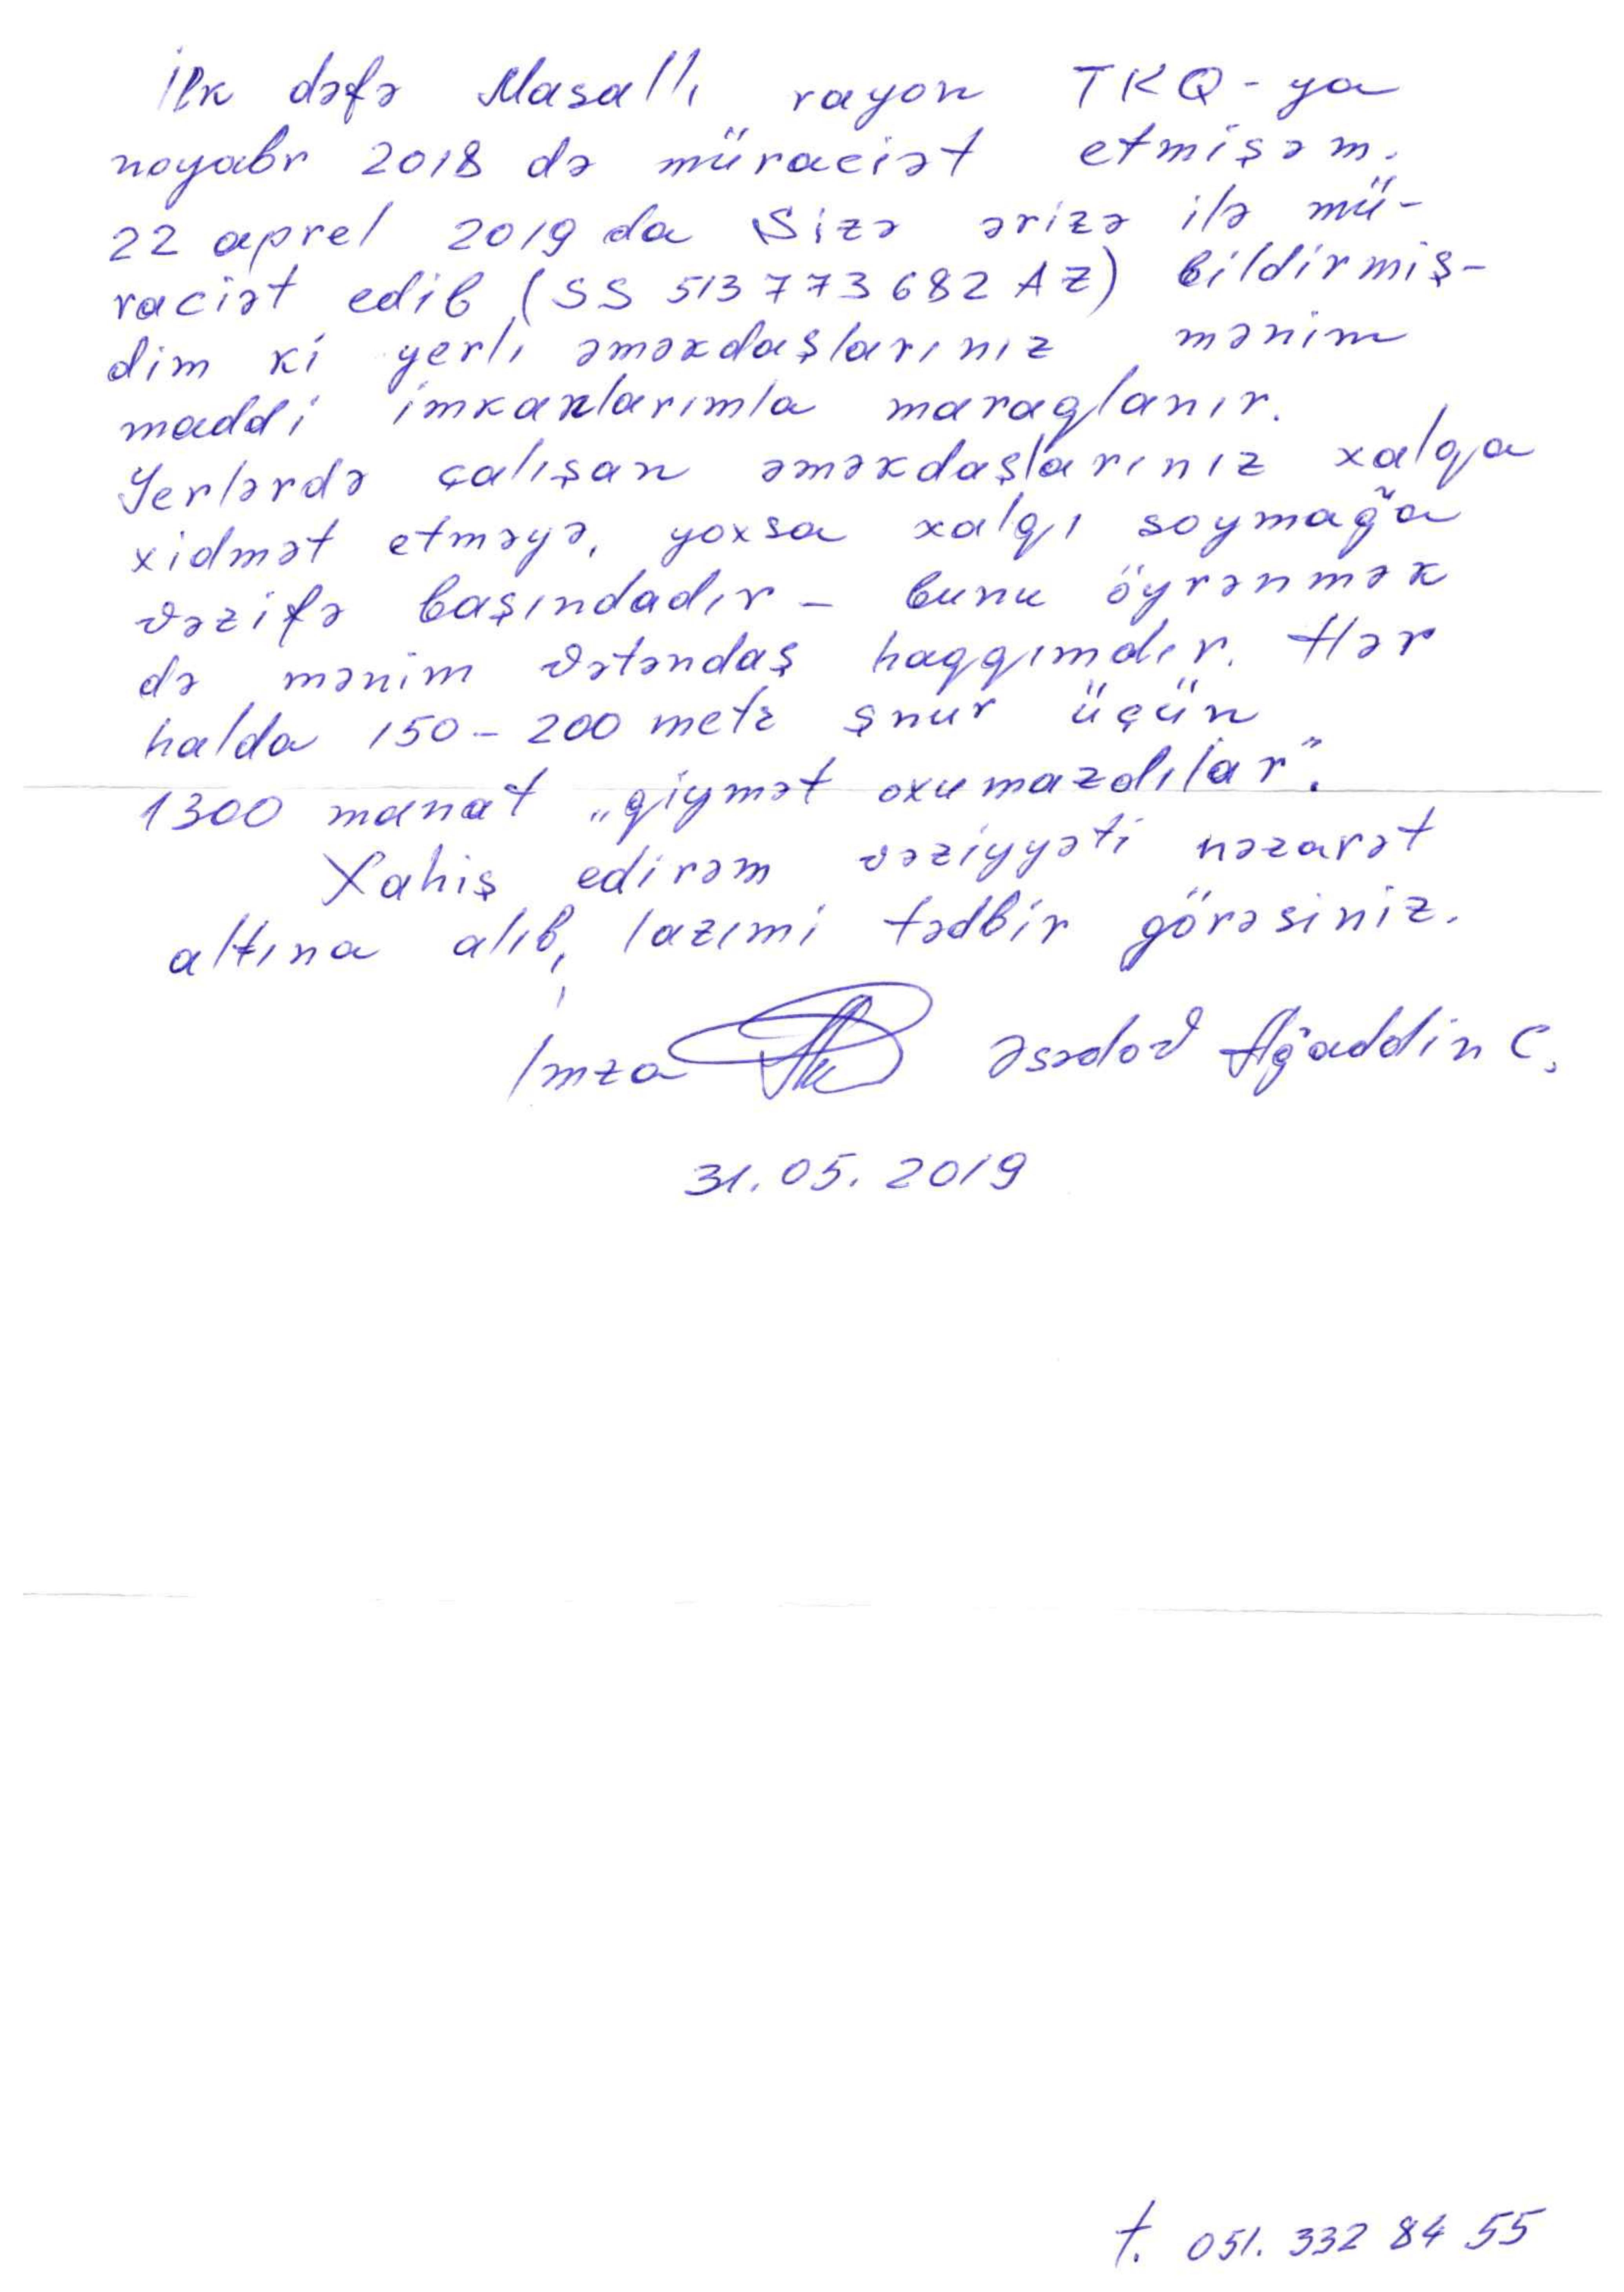 İlk dəfə Masallı rayon TKQ-ya
noyabr 2018 də müraciət etmişəm.
22 aprel 2019 da Sizə ərizə ilə mü-
raciət edib (SS 513773682 AZ) bildirmiş-
dim ki yerli əməkdaşlarınız mənim
maddi imkanlarımla maraqlanır.
Yerlərdə çalışan əməkdaşlarınız xalqa
xidmət etməyə, yoxsa xalqı soymağa
vəzifə başındadır – bunu öyrənmək
də mənim vətəndaş haqqımdır. Hər
halda 150 – 200 metr şnur üçün
1300 manat „qiymət oxumazdılar".
Xahiş edirəm vəziyyəti nəzarət
altına alıb, lazımi tədbir görəsiniz.
İmza Əsədov Ağaddin C.
31.05.2019
t. 051. 332 84 55